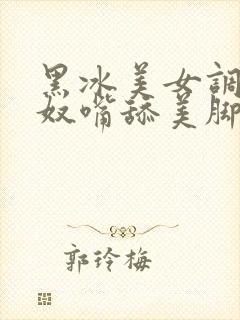 黑冰美女調
奴嘴舔美脚
郭玲梅